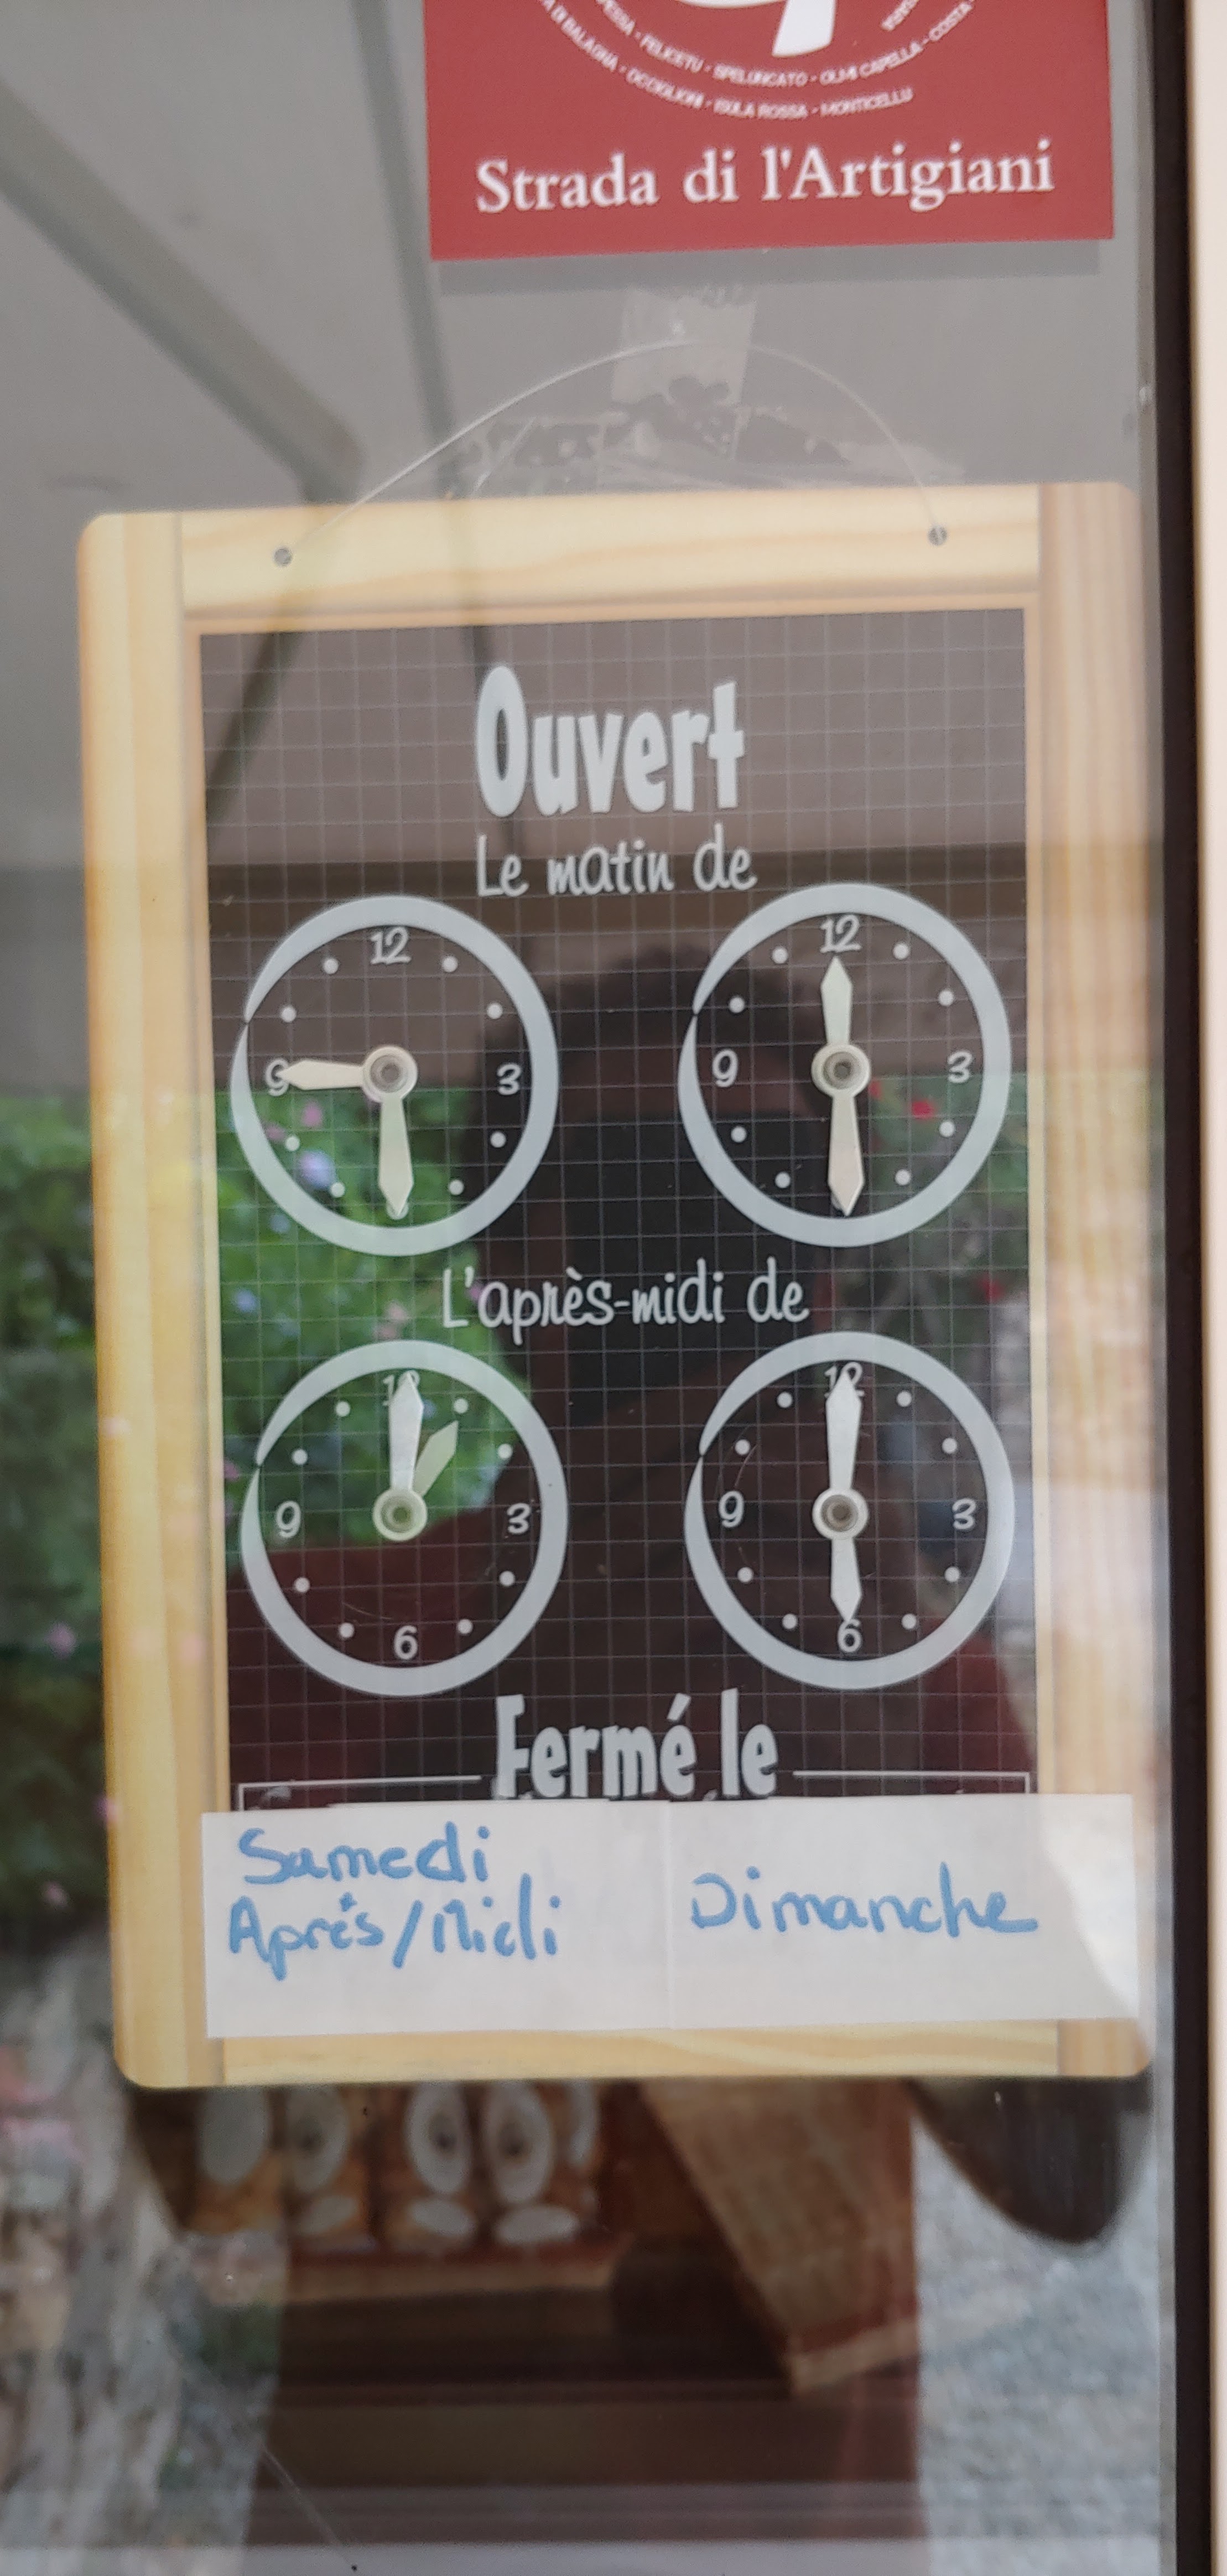 PESSA - FELICETU - SPELUNCATO - OLMI CAPELLA - COSTA
A DI BALAGNA - OCCIGLIONI - ISULA ROSSA - MONTICELLU
Strada di l'Artigiani
Ouvert
Le matin de
12 3 9
12 3 9
L'après-midi de
12 3 6 9
12 3 6 9
Fermé le
Samedi
Après/Midi
Dimanche